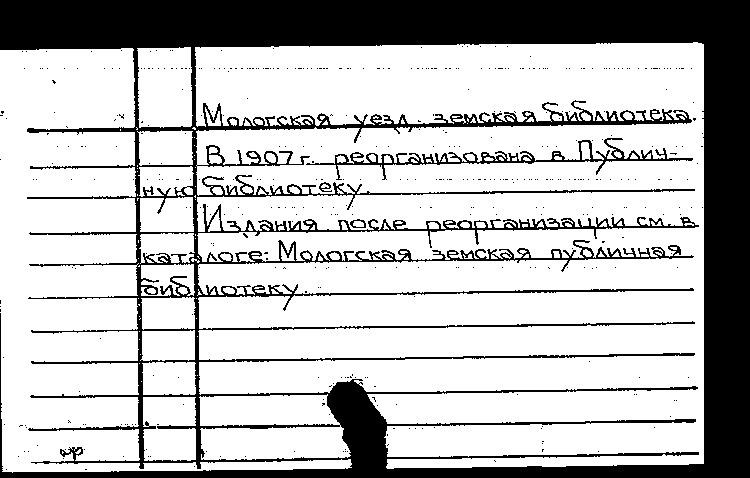 Мологская уезд. земская библиотека.
В 1907 г. реорганизована в Публич-
ную библиотеку.
Издания после реорганизации см. в
каталоге: Мологская земская публичная
библиотеку.